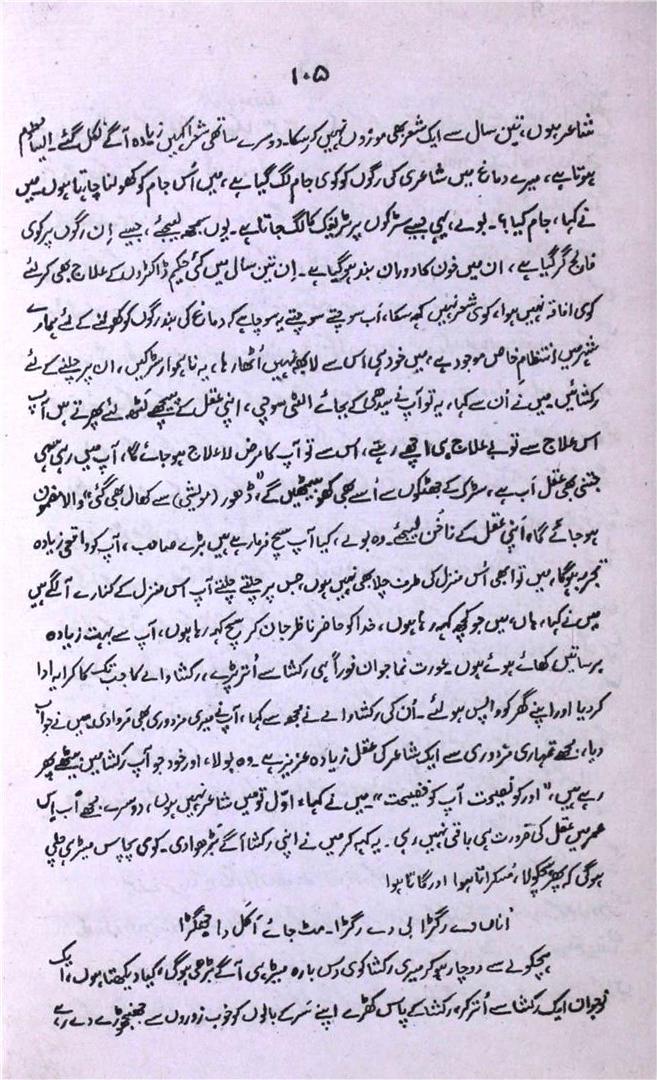 ۱۰۵
شاعر ہوں، تین سال سے ایک شعر بھی موزوں نہیں کر سکا۔ دوسرے ساتھی شعرا کہیں زیادہ آگے نکل گئے۔ ایسا معلوم
ہوتا ہے، میرے دماغ میں شاعری کی رگوں کو کوئی جام لگ گیا ہے، میں اُس جام کو کھولنا چاہتا ہوں۔ میں
نے کہا، جام کیا؟۔ بولے، یہی جیسے سڑکوں پر ٹریفک کا لگ جاتا ہے۔ یوں سمجھ لیجئے، جیسے اِن رگوں پر کوئی
فالج گر گیا ہے، ان میں خون کا دوران بند ہو گیا ہے۔ اِن تین سال میں کئی حکیم ڈاکٹروں کے علاج بھی کر لئے
کوئی افاقہ نہیں ہوا، کوئی شعر نہیں کہہ سکا، اَب سوچتے سوچتے یہ سوچا ہے کہ دماغ کی بند رگوں کو کھولنے کے لئے ہمارے
شہر میں انتظامِ خاص موجود ہے، میں خود ہی اس سے لابھ نہیں اُٹھا رہا، یہ ناہموار سڑکیں، ان پر چلنے کے لئے
رکشائیں۔ میں نے اُن سے کہا، یہ تو آپ نے سیدھی کے بجائے الٹی سوچی، اپنی عقل کے پیچھے لٹھ لئے پھرتے ہیں آپ
اس علاج سے تو بے علاج ہی اچھے رہتے، اس سے تو آپ کا مرض لاعلاج ہو جائے گا، آپ میں رہی سہی
جتنی بھی عقل اَب ہے، سڑک کے جھٹکوں سے اُسے بھی کھو بیٹھیں گے، "ڈھور (مویشی) سے کھال بھی گئی" والا مضمون
ہو جائے گا، اَپنی عقل کے ناخن لیجئے۔ وہ بولے، کیا آپ سچ فرما رہے ہیں بڑے صاحب، آپ کو واقعی زیادہ
تجربہ ہوگا، میں تو ابھی اُس منزل کی طرف چلا بھی نہیں ہوں، جس پر چلتے چلتے آپ اس منزل کے کنارے آ لگے ہیں
میں نے کہا، ہاں، میں جو کچھ کہہ رہا ہوں، خدا کو حاضر ناظر جان کر سچ کہہ رہا ہوں، آپ سے بہت زیادہ
برساتیں کھائے ہوئے ہوں۔ عورت نما جوان فوراً ہی رکشا سے اُتر پڑے، رکشا والے کا جب تک کا کرایہ ادا
کر دیا اور اپنے گھر کو واپس ہو لئے۔ اُن کی رکشا والے نے مجھ سے کہا، آپ نے میری مزدوری بھی مروا دی، میں نے جواب
دیا، مجھے تمہاری مزدوری سے ایک شاعر کی عقل زیادہ عزیز ہے۔ وہ بولا، اور خود جو آپ رکشا میں بیٹھے پھر
رہے ہیں، "اور کو نصیحت آپ کو فضیحت"، میں نے کہا، اوّل تو میں شاعر نہیں ہوں، دوسرے مجھے اَب اِس
عمر میں عقل کی ضرورت ہی باقی نہیں رہی۔ یہ کہہ کر میں نے اپنی رکشا آگے بڑھوا دی۔ کوئی پچاس میٹر ہی چلی
ہوگی کہ پھر ہچکولا، مُسکراتا ہوا اور گاتا ہوا
دے رگڑا بی دے رگڑا۔ مٹ جائے اَکل دا جھگڑا
ہچکولے سے دوچار ہو کر میری رکشا کوئی دس بارہ میٹر ہی آگے بڑھی ہوگی، کیا دیکھتا ہوں، ایک
نوجوان ایک رکشا سے اُتر کر، رکشا کے پاس کھڑے اپنے سَر کے بالوں کو خوب زوروں سے جھنجھوڑے دے رہے